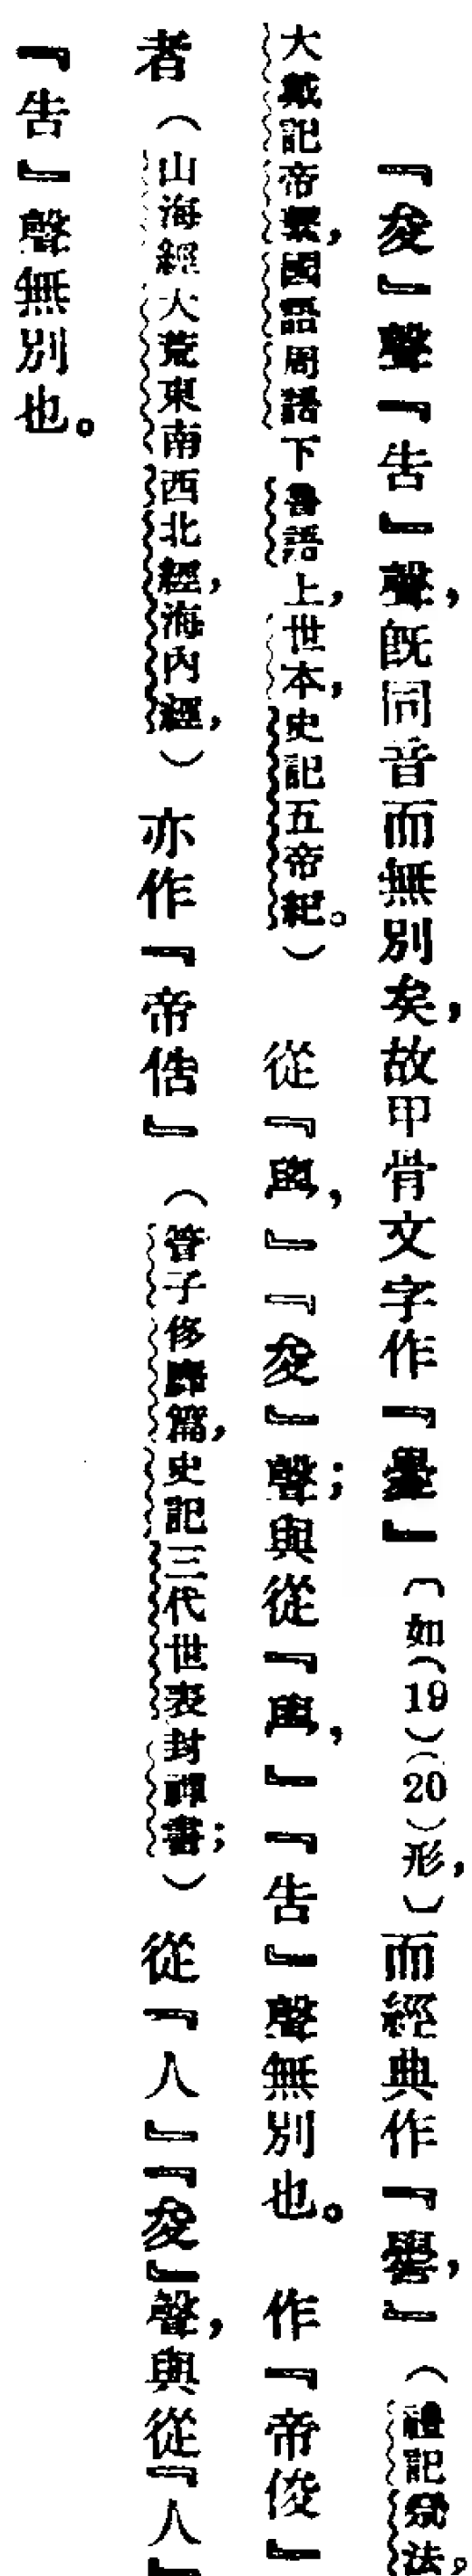 『夋』聲『告』聲，既同音而無別矣，故甲骨文字作『』〔如（19）（20）形，〕而經典作『嚳，』（禮記祭法，
大戴記帝繫，國語周語下魯語上，世本，史記五帝紀。）從『，』『夋』聲；與從『，』『告』聲無別也。作『帝俊』
者（山海經大荒東南西北經，海內經，）亦作『帝俈』（管子侈靡篇，史記三代世表封禪書；）從『人』『夋』聲，與從『人』
『告』聲無別也。